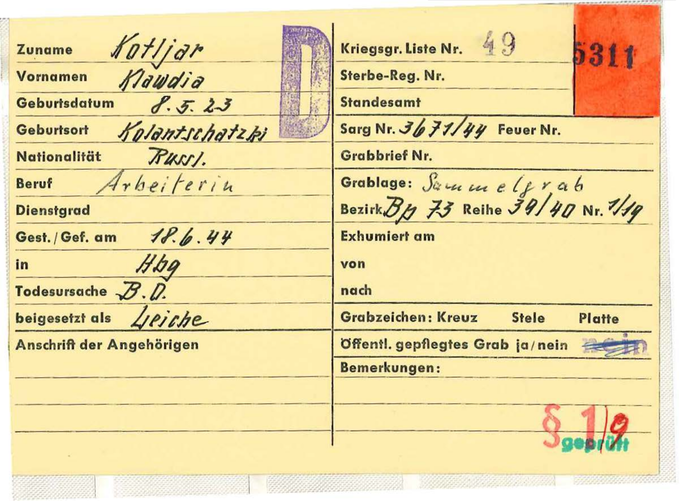 Zuname Kotljar
Vornamen Klawdia
Geburtsdatum 8.5.23
Geburtsort Kolantschatzki
Nationalität Russl.
Beruf Arbeiterin
Dienstgrad
Gest./Gef. am 18.6.44
in Hbg
Todesursache B.O.
beigesetzt als Leiche
Anschrift der Angehörigen
D
Kriegsgr. Liste Nr. 49
5311
Sterbe-Reg. Nr.
Standesamt
Sarg Nr. 3671/44 Feuer Nr.
Grabbrief Nr.
Grablage: Sammelgrab
Bezirk Bp 73 Reihe 39/40 Nr. 1/19
Exhumiert am
von
nach
Grabzeichen: Kreuz Stele Platte
Öffentl. gepflegtes Grab ja/nein nein
Bemerkungen:
§ 1/9
geprüft